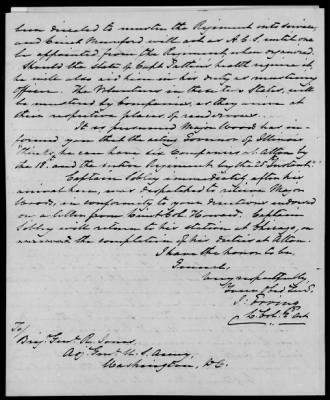 been directed to muster the Regiment into service,
and Lieut Mumford will act as A.C.S. until one
be appointed from the Regiment, when organized.
Should the state of Capt. health require it,
he will also aid him in his duty as mustering
officer. The Volunteers in the other States, will
be mustered by Companies, as they arrive at
their respective places of rendezvous.
It is presumed Major Woods has in-
formed you that the acting Governor of Illinois
he can have six Companies at Alton by
the 18th and the entire Regiment by the 25th Instant.
Captain Sibley immediately after his
arrival here, was despatched to relieve Major
Woods, in conformity to your directions endorsed
on a letter from Lieut Col. Howard. Captain
Sibley will return to his station at Chicago, on
the completion of his duties at Alton.
I have the honor to be
General,
Very respectfully
Your Obed. Serv.
J. Erving
Lt. Col. 2d Art
To/
Brig. Genl. R. Jones
Adj. Genl. U.S. Army,
Washington, D.C.